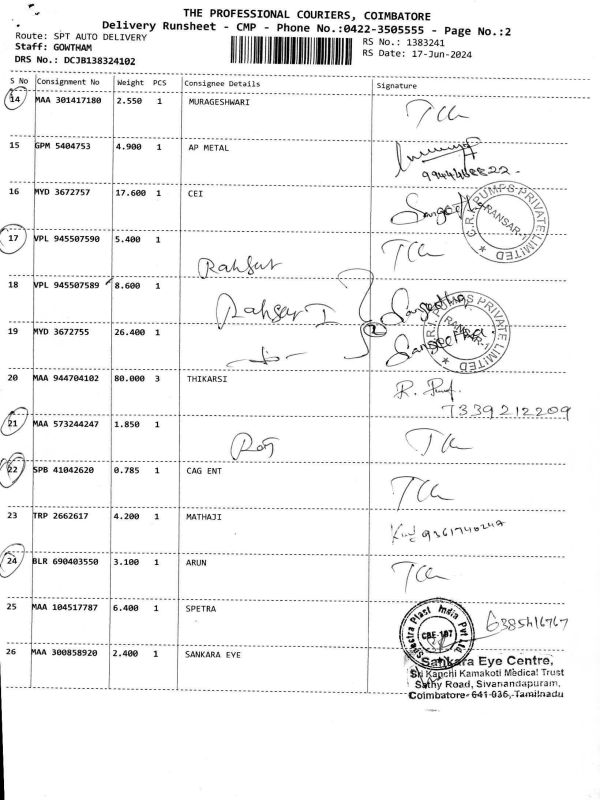 THE PROFESSIONAL COURIERS, COIMBATORE
Delivery Runsheet - CMP - Phone No.:0422-3505555 - Page No.:2
Route: SPT AUTO DELIVERY
Staff: GOWTHAM
DRS No.: DCJB138324102
RS No.: 1383241
RS Date: 17-Jun-2024
S No Consignment No Weight PCS Consignee Details Signature
14 MAA 301417180 2.550 1 MURAGESHWARI
15 GPM 5404753 4.900 1 AP METAL
16 MYD 3672757 17.600 1 CEI Sangeetha
C.R.I. PUMPS PRIVATE LIMITED
17 VPL 945507590 5.400 1
18 VPL 945507589 8.600 1 Sangeetha
C.R.I. PUMPS PRIVATE LIMITED
2
19 MYD 3672755 26.400 1 Sangeetha
20 MAA 944704102 80.000 3 THIKARSI R.
7339212209
21 MAA 573244247 1.850 1
22 SPB 41042620 0.785 1 CAG ENT
23 TRP 2662617 4.200 1 MATHAJI
24 BLR 690403550 3.100 1 ARUN
25 MAA 104517787 6.400 1 SPETRA
Spetra Plast India Pvt Ltd.
CBE-107
26 MAA 300858920 2.400 1 SANKARA EYE
Sankara Eye Centre,
Sri Kanchi Kamakoti Medical Trust
Sathy Road, Sivanandapuram,
Coimbatore- 641 035, Tamilnadu